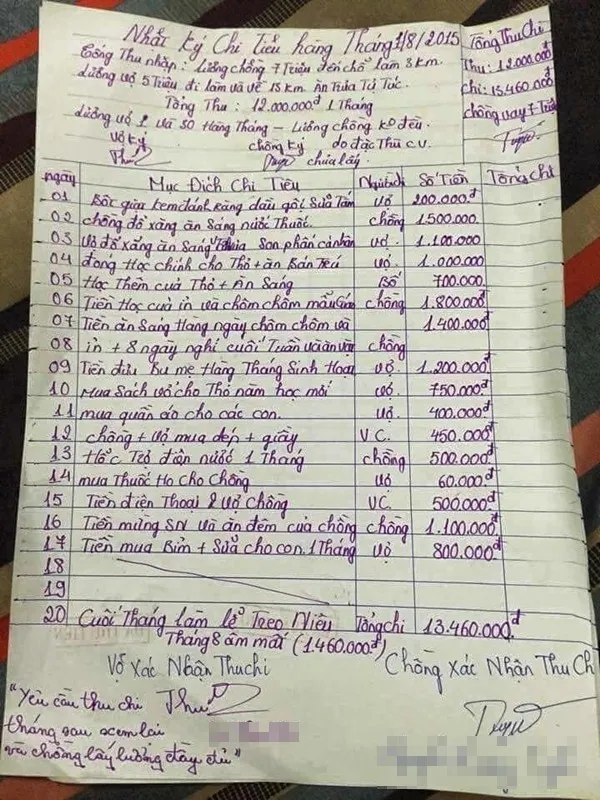 Nhất Ký Chi Tiêu hàng Tháng 1/8/2015
Tổng Thu nhập: Lương chồng 7 Triệu đến chỗ làm 3 km.
Lương vợ 5 Triệu đi làm và về 15 km. Ăn Trưa Tự Túc.
Tổng Thu: 12.000.000đ 1 Tháng
Lương vợ 2 và 30 Hàng Tháng - Lương chồng ko đều.
Vợ Ký chồng Ký do đặc Thù C.V.
chưa lấy
Tổng Thu Chi
Thu: 12.000.000
chi: 13.460.000
chồng vay 7 Triệu
ngày Mục Đích Chi Tiêu Người chi Số Tiền Tổng chi
01 Bột giặt kem đánh Răng dầu gội Sữa Tắm vợ 200.000đ
02 chồng đổ xăng ăn Sáng nước Thuốc. chồng 1500.000
03 Vợ đổ xăng ăn Sáng Son phấn cá nhân vợ. 1.100.000
04 đóng Học chính cho Thỏ + ăn Bán Trú vợ. 1.000.000
05 Học Thêm của Thỏ + Ăn Sáng Bố 700.000
06 Tiền Học của in và chôm chôm mẫu Giáo chồng 1.800.000
07 Tiền ăn Sang Hàng ngày chôm chôm và 1.400.000
08 in + 8 ngày nghỉ cuối Tuần và ăn vặt chồng
09 Tiền đưa Bu mẹ Hàng Tháng Sinh Hoạt vợ. 1.200.000đ
10 Mua Sách vở cho Thỏ năm học mới vợ. 750.000đ
11 mua quần áo cho các con. vợ. 400.000đ
12 chồng + vợ mua dép + giầy V.C. 450.000đ
13 điện nước 1 Tháng chồng 500.000đ
14 mua Thuốc Ho cho Chồng vợ 60.000đ
15 Tiền điện Thoại 2 vợ chồng VC. 500.000đ
16 Tiền mừng SN và ăn đêm của chồng chồng 1.100.000đ
17 Tiền mua Bỉm + Sữa cho con 1 Tháng vợ 800.000đ
18
19
20 Cuối Tháng làm lễ Treo Niêu Tổng chi 13.460.000đ
Tháng 8 âm mất (1.460.000đ)
Vợ Xác Nhận Thu chi Chồng Xác Nhận Thu Chi
"Yêu cầu thu chi
tháng sau xem lại
và chồng lấy lương đầy đủ"